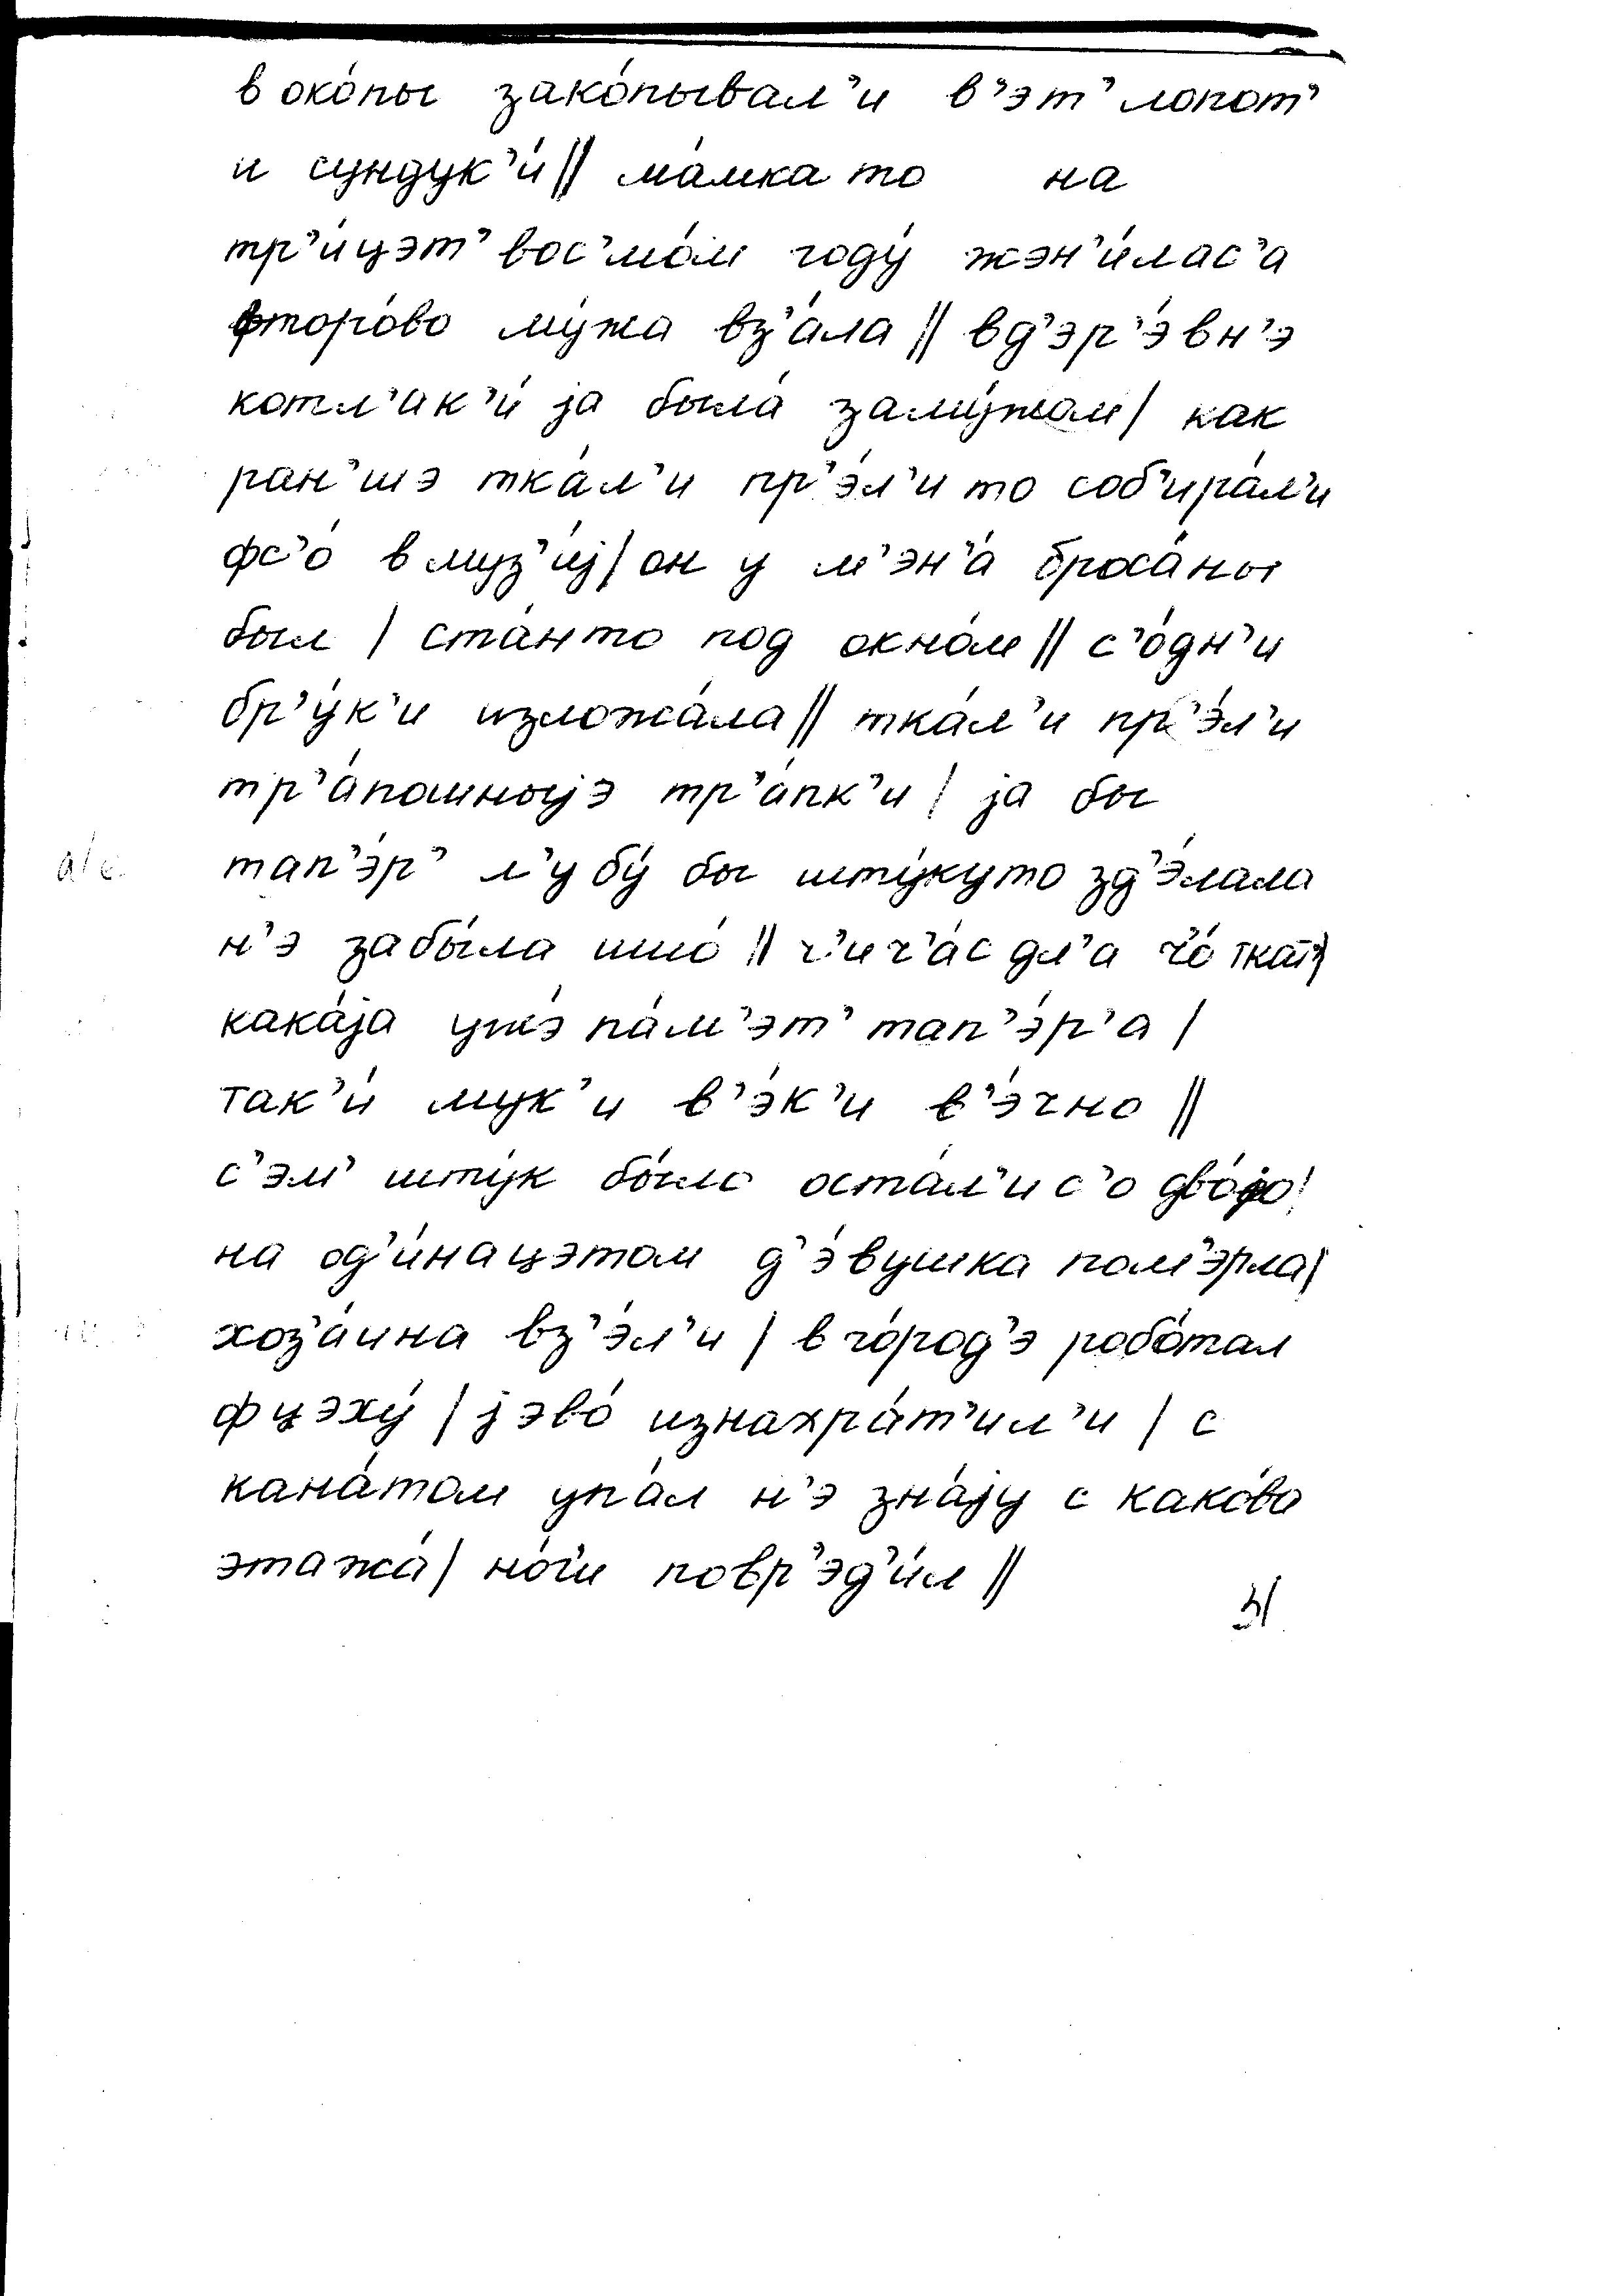 в око́пы зако́пывал’и в’эт’ лопот’
и сундук’и́ || ма́мка то на
тр’и́цэт’ вос’мо́м году́ жэн’и́лас’а
фторо́во му́жа вз’а́ла || в д’эр’э́вн’э
котл’ак’и́ jа была́ заму́жом | как
ран’шэ тка́л’и пр’э́л’и то соб’ира́л’и
фс’о́ в муз’и́j | он у м’эн’а́ броса́ны
был | ста́нто под окно́м || с’о́дн’и
бр’у́к’и изложа́ла || тка́л’и пр’э́л’и
тр’а́пошныjэ тр’а́пк’и | jа бы
тап’э́р’ л’убу́ бы шту́куто зд’э́лала
н’э забы́ла ишо́ || ч’ич’а́с дл’а ч’о́ ткат’ |
кака́jа ужэ́ па́м’эт’ тап’э́р’а |
так’и́ мук’и в’э́к’и в’э́чно ||
с’эм’ шту́к бы́ло оста́л’ис’о дво́jо |
на од’и́нацэтом д’э́вушка пом’эрла |
хоз’а́ина вз’э́л’и | в го́род’э робо́тал
фцэху́ | jэво́ изнахра́т’ил’и | с
кана́том упа́л н’э зна́jу с како́ва
этажа́ | но́г’и повр’эд’и́л ||
31